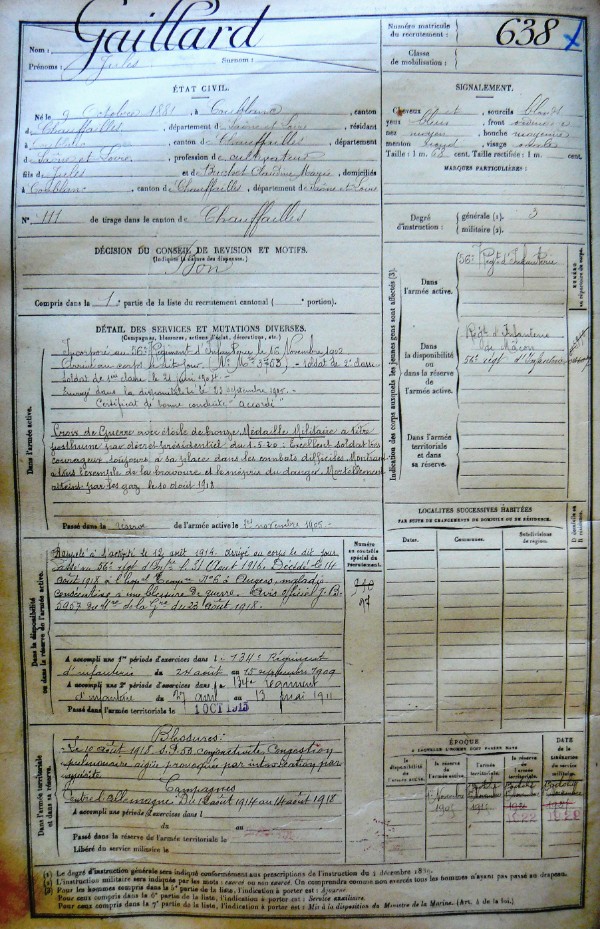 Gaillard
Nom :
Prénoms : Jules Surnom :
Numéro matricule
du recrutement :
638
Classe
de mobilisation :
ÉTAT CIVIL.
Né le 9 Octobre 1881, à Coublanc, canton
de Chauffailles, département de Saône et Loire, résidant
à Coublanc, canton de Chauffailles, département
de Saône et Loire, profession de cultivateur
fils de Jules et de Claudine Marie, domiciliés
à Coublanc, canton de Chauffailles, département de Saône et Loire
N° 111 de tirage dans le canton de Chauffailles
SIGNALEMENT.
Cheveux, sourcils
yeux bleus, front ordinaire
nez moyen, bouche moyenne
menton rond, visage ovale
Taille : 1 m. cent. Taille rectifiée : 1 m. cent.
MARQUES PARTICULIÈRES :
Degré
d'instruction :
générale (1). 3
militaire (2).
DÉCISION DU CONSEIL DE REVISION ET MOTIFS.
(Indiquer la nature des dispenses.)
Bon
Compris dans la 1e partie de la liste du recrutement cantonal ( portion).
DÉTAIL DES SERVICES ET MUTATIONS DIVERSES.
(Campagnes, blessures, actions d'éclat, décorations, etc.)
Dans l'armée active.
Incorporé au 56e Régiment d'Infanterie le 16 Novembre 1902
Arrivé au corps le dit jour, (N° Mle 3753) soldat de 2e classe
soldat de 1ere classe le 21 juin 1904.
Envoyé dans la disponibilité le 23 septembre 1905.
Certificat de bonne conduite "Accordé"
Croix de Guerre avec étoile de bronze, Médaille Militaire à titre
posthume par décret présidentiel du 1.5.20 : Excellent soldat très
courageux toujours à sa place dans les combats difficiles. Montrant
à tous l'exemple de la bravoure et le mépris du danger. Mortellement
atteint par les gaz le 10 août 1918
Passé dans la réserve de l'armée active le 1er novembre 1905.
Indication des corps auxquels les jeunes gens sont affectés (3).
NUMÉRO
au répertoire du corps.
Dans
l'armée active.
56e Régt d'Infanterie
Dans
la disponibilité
ou dans la réserve
de l'armée active.
Régt d'Infanterie
de Mâcon
56e régt d'Infanterie
Dans l'armée
territoriale et dans
sa réserve.
LOCALITÉS SUCCESSIVES HABITÉES
PAR SUITE DE CHANGEMENTS DE DOMICILE OU DE RÉSIDENCE.
Dates. Communes. Subdivisions
de région.
D domicile ou
R résidence.
Dans la disponibilité
ou dans la réserve de l'armée active.
Rappelé à l'activité le 12 août 1914. Arrivé au corps le dit jour
Passé au 36e régt d'Infie le 21 Août 1916. Décédé le 14
août 1918 à l'hôpital Temp. N° 6 à Angers, maladie
consécutive à une blessure de guerre. Avis officiel
5957 du Mre de la Gre du 23 août 1918.
Numéro
au contrôle
spécial du
recrutement.
A accompli une 1re période d'exercices dans le 134e Régiment
d'infanterie du 24 août au 15 septembre 1909
A accompli une 2e période d'exercices dans le 134e régiment
d'infanterie du 27 avril au 13 mai 1911
Passé dans l'armée territoriale le 1 OCT 1915
Dans l'armée territoriale
et dans sa réserve.
Blessures:
Le 10 août 1918 conjonctivite, Congestion
pulmonaire aigüe provoquée par intoxication par
ypérite
Campagnes
Contre l'Allemagne Du 12 août 1914 au 14 août 1918
A accompli une période d'exercices dans l
du au
Passé dans la réserve de l'armée territoriale le
Libéré du service militaire le
ÉPOQUE
À LAQUELLE L'HOMME DOIT PASSER DANS
la disponibilité
de l'armée active.
la réserve
de l'armée active.
l'armée
territoriale.
la réserve
de l'armée
territoriale.
DATE
DE LA
LIBÉRATION
du service
militaire.
1er Novembre
1905
(1) Le degré d'instruction générale sera indiqué conformément aux prescriptions de l'instruction du
(2) L'instruction militaire sera indiquée par les mots : exercé ou non exercé. On comprendra comme non exercés tous les hommes n'ayant pas passé au drapeau.
(3) Pour les hommes compris dans la 5e partie de la liste, l'indication à porter est : Ajourné.
Pour ceux compris dans la 6e partie de la liste, l'indication à porter est : Service auxiliaire.
Pour ceux compris dans la 7e partie de la liste, l'indication à porter est : Mis à la disposition du Ministre de la Marine. (Art. 4 de la loi.)